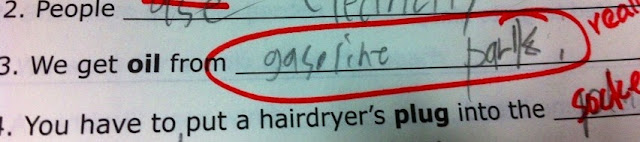 2. People use electricity
3. We get oil from gasoline parks. really
4. You have to put a hairdryer's plug into the socket